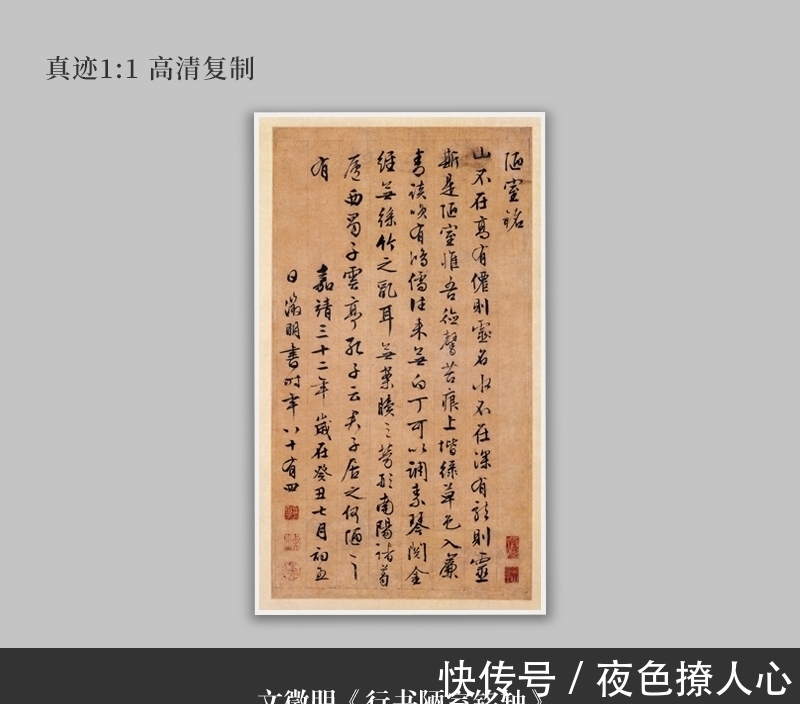 真迹1:1 高清复制
陋室铭
山不在高有僊則靈名水不在深有龍則靈
斯是陋室惟吾德馨苔痕上堦綠草色入簾
青談咲有鴻儒往来無白丁可以調素琴閱金
經無絲竹之亂耳無案牘之勞形南陽諸葛
廬西蜀子雲亭孔子云君子居之何陋之
有
嘉靖三十二年歲在癸丑七月初五
日徵明書时年八十有四
文徵明《行书陋室铭轴》
快传号 / 夜色撩人心